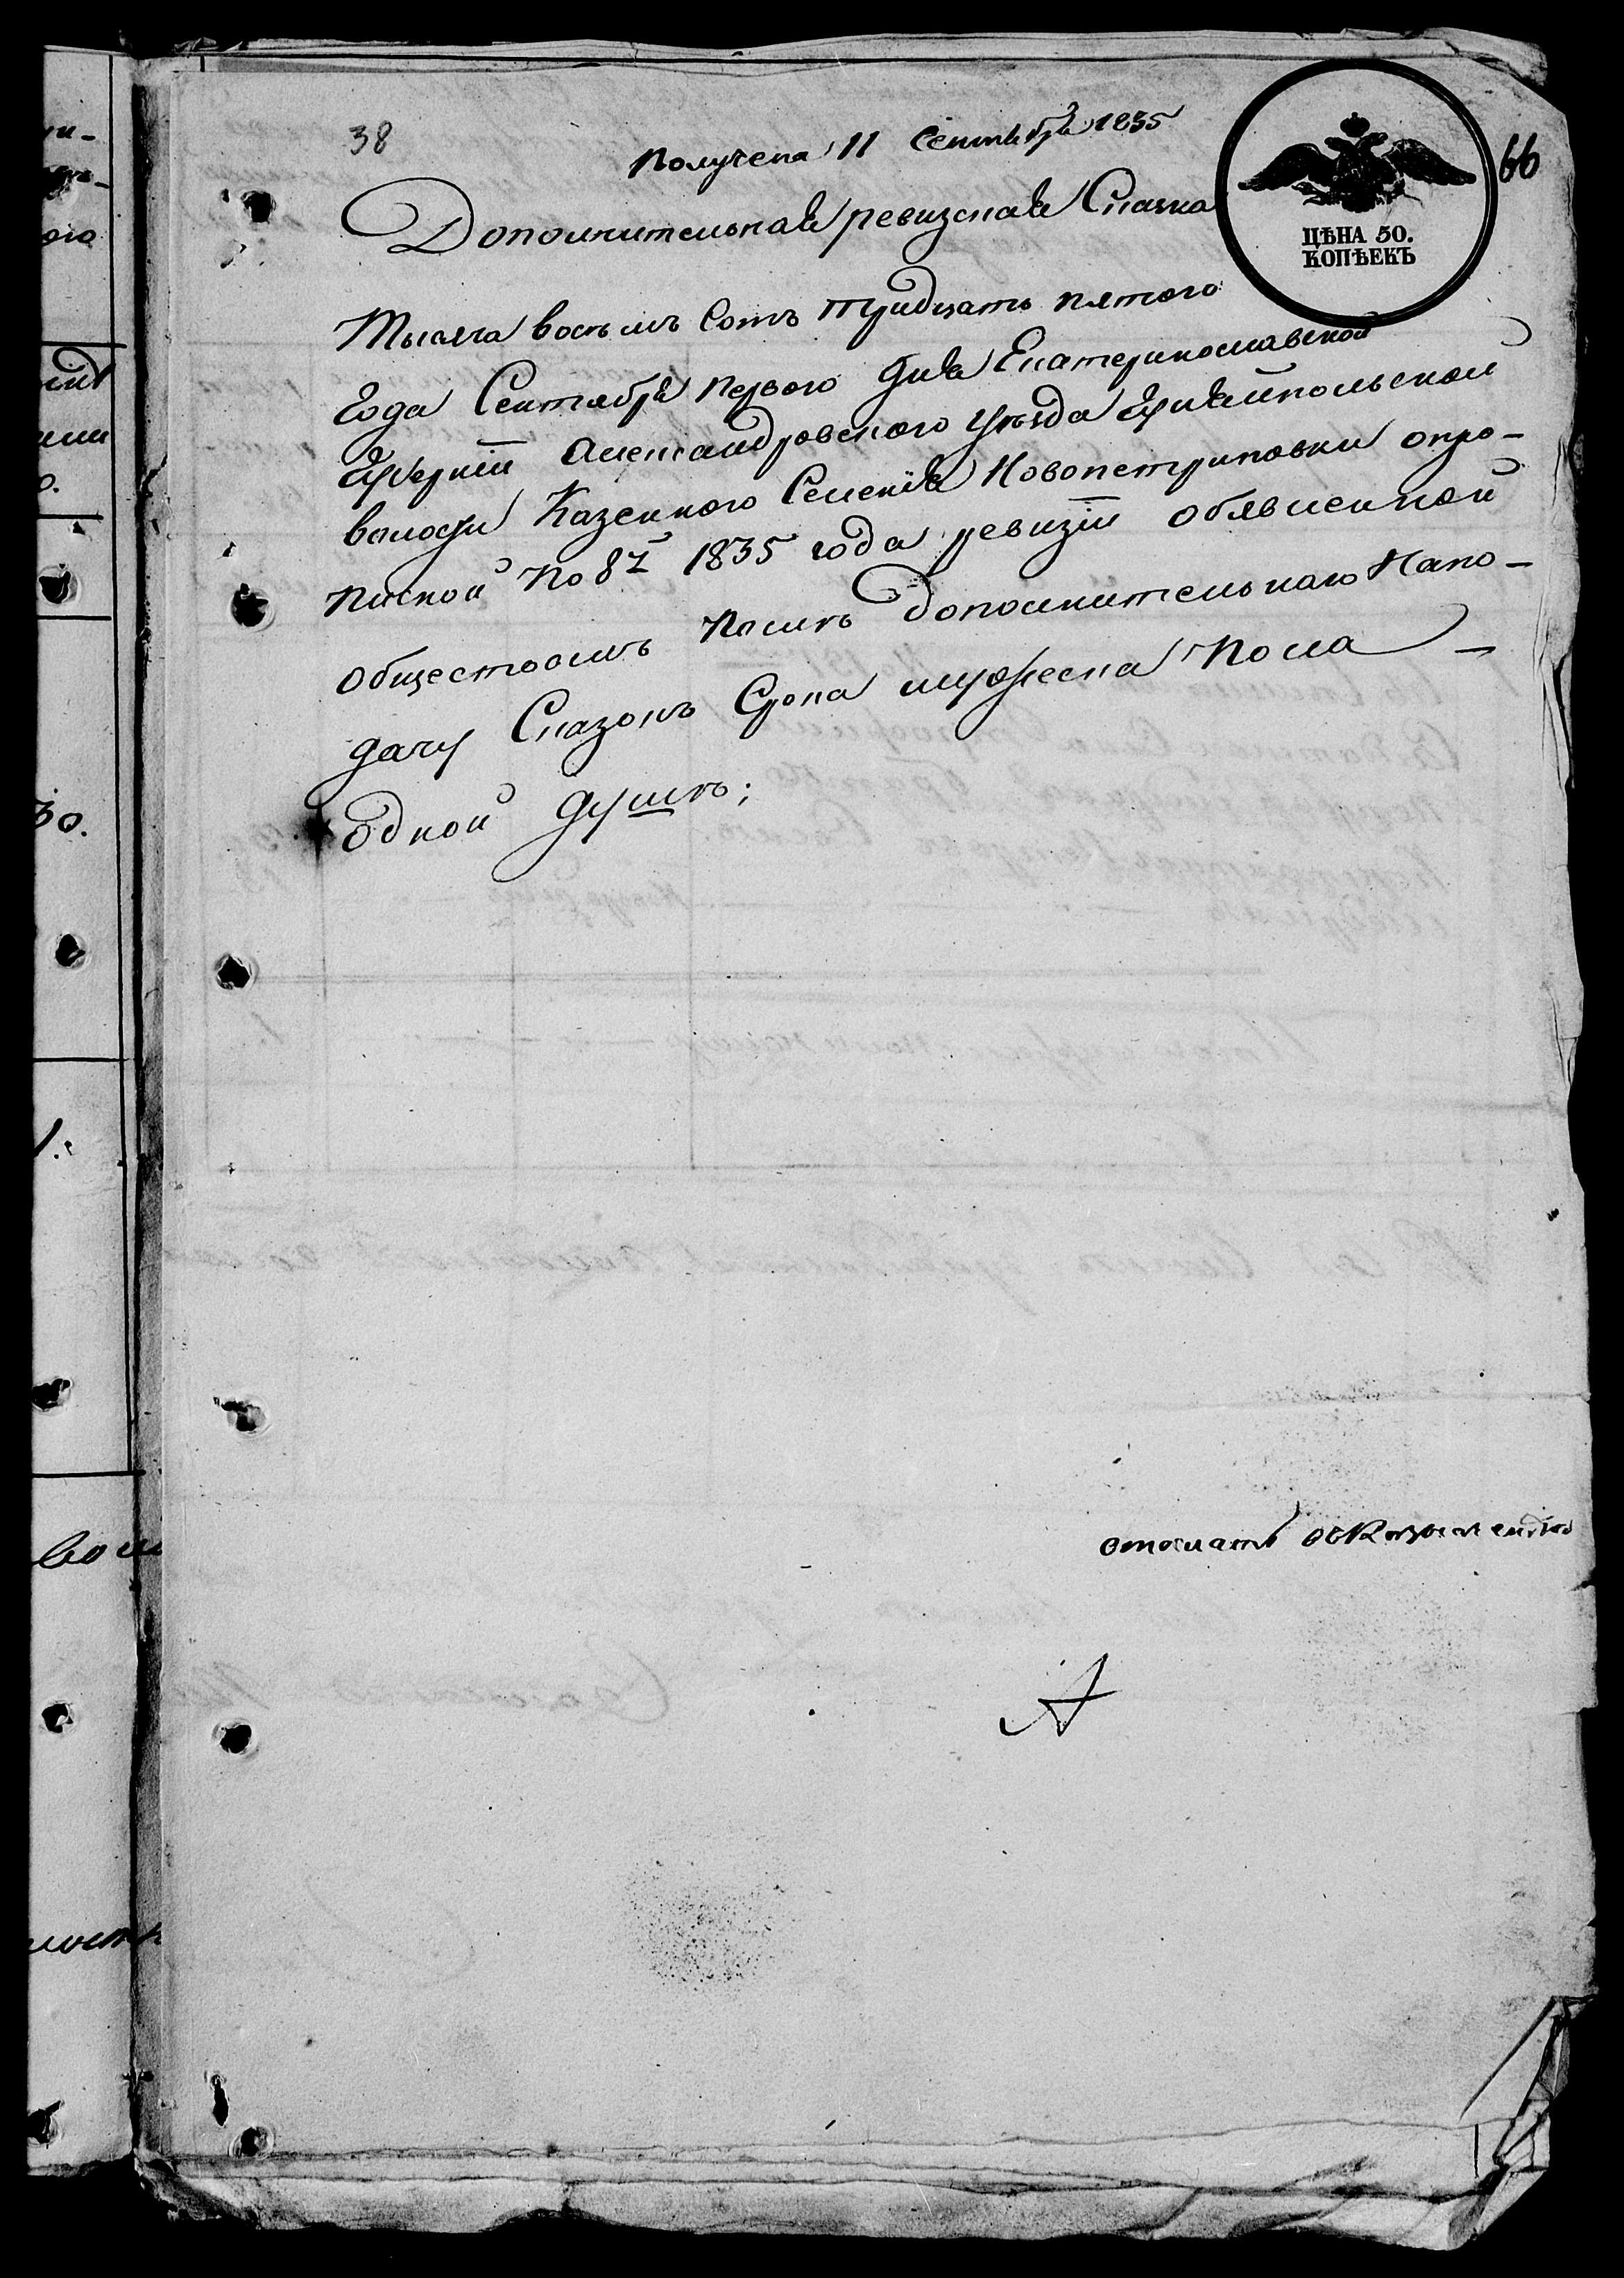 38
Получена 11 Сентября 1835
66
Дополнительная ревизская Сказка
ЦѢНА 50.
КОПѢЕКЪ
Тысяча восемъ Сотъ тридцать пятого
Года Сентября первого дня Екатеринославской
Губернiи Александровского уѣзда
волости Казенного Селенiя Новопетриковки опро-
пиской No 8й 1835 года ревизiи обявленной
обществомъ послѣ дополнительнаго Напо-
дачу Сказокъ Срока мужеска пола
одной душѣ;
отослать